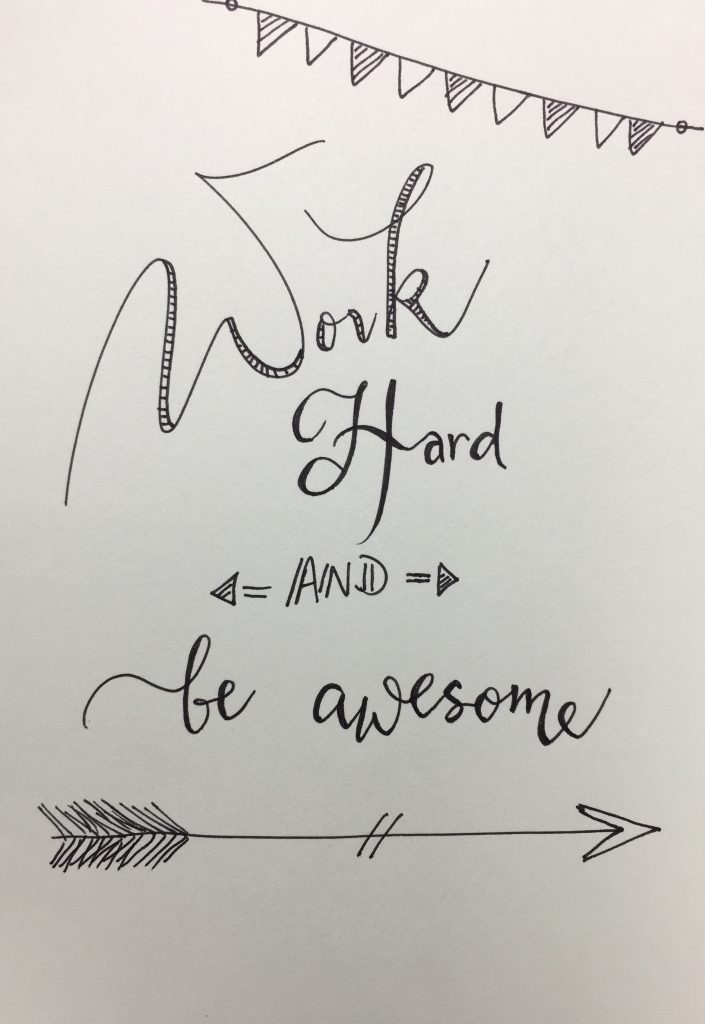 Work
Hard
AND
be awesome